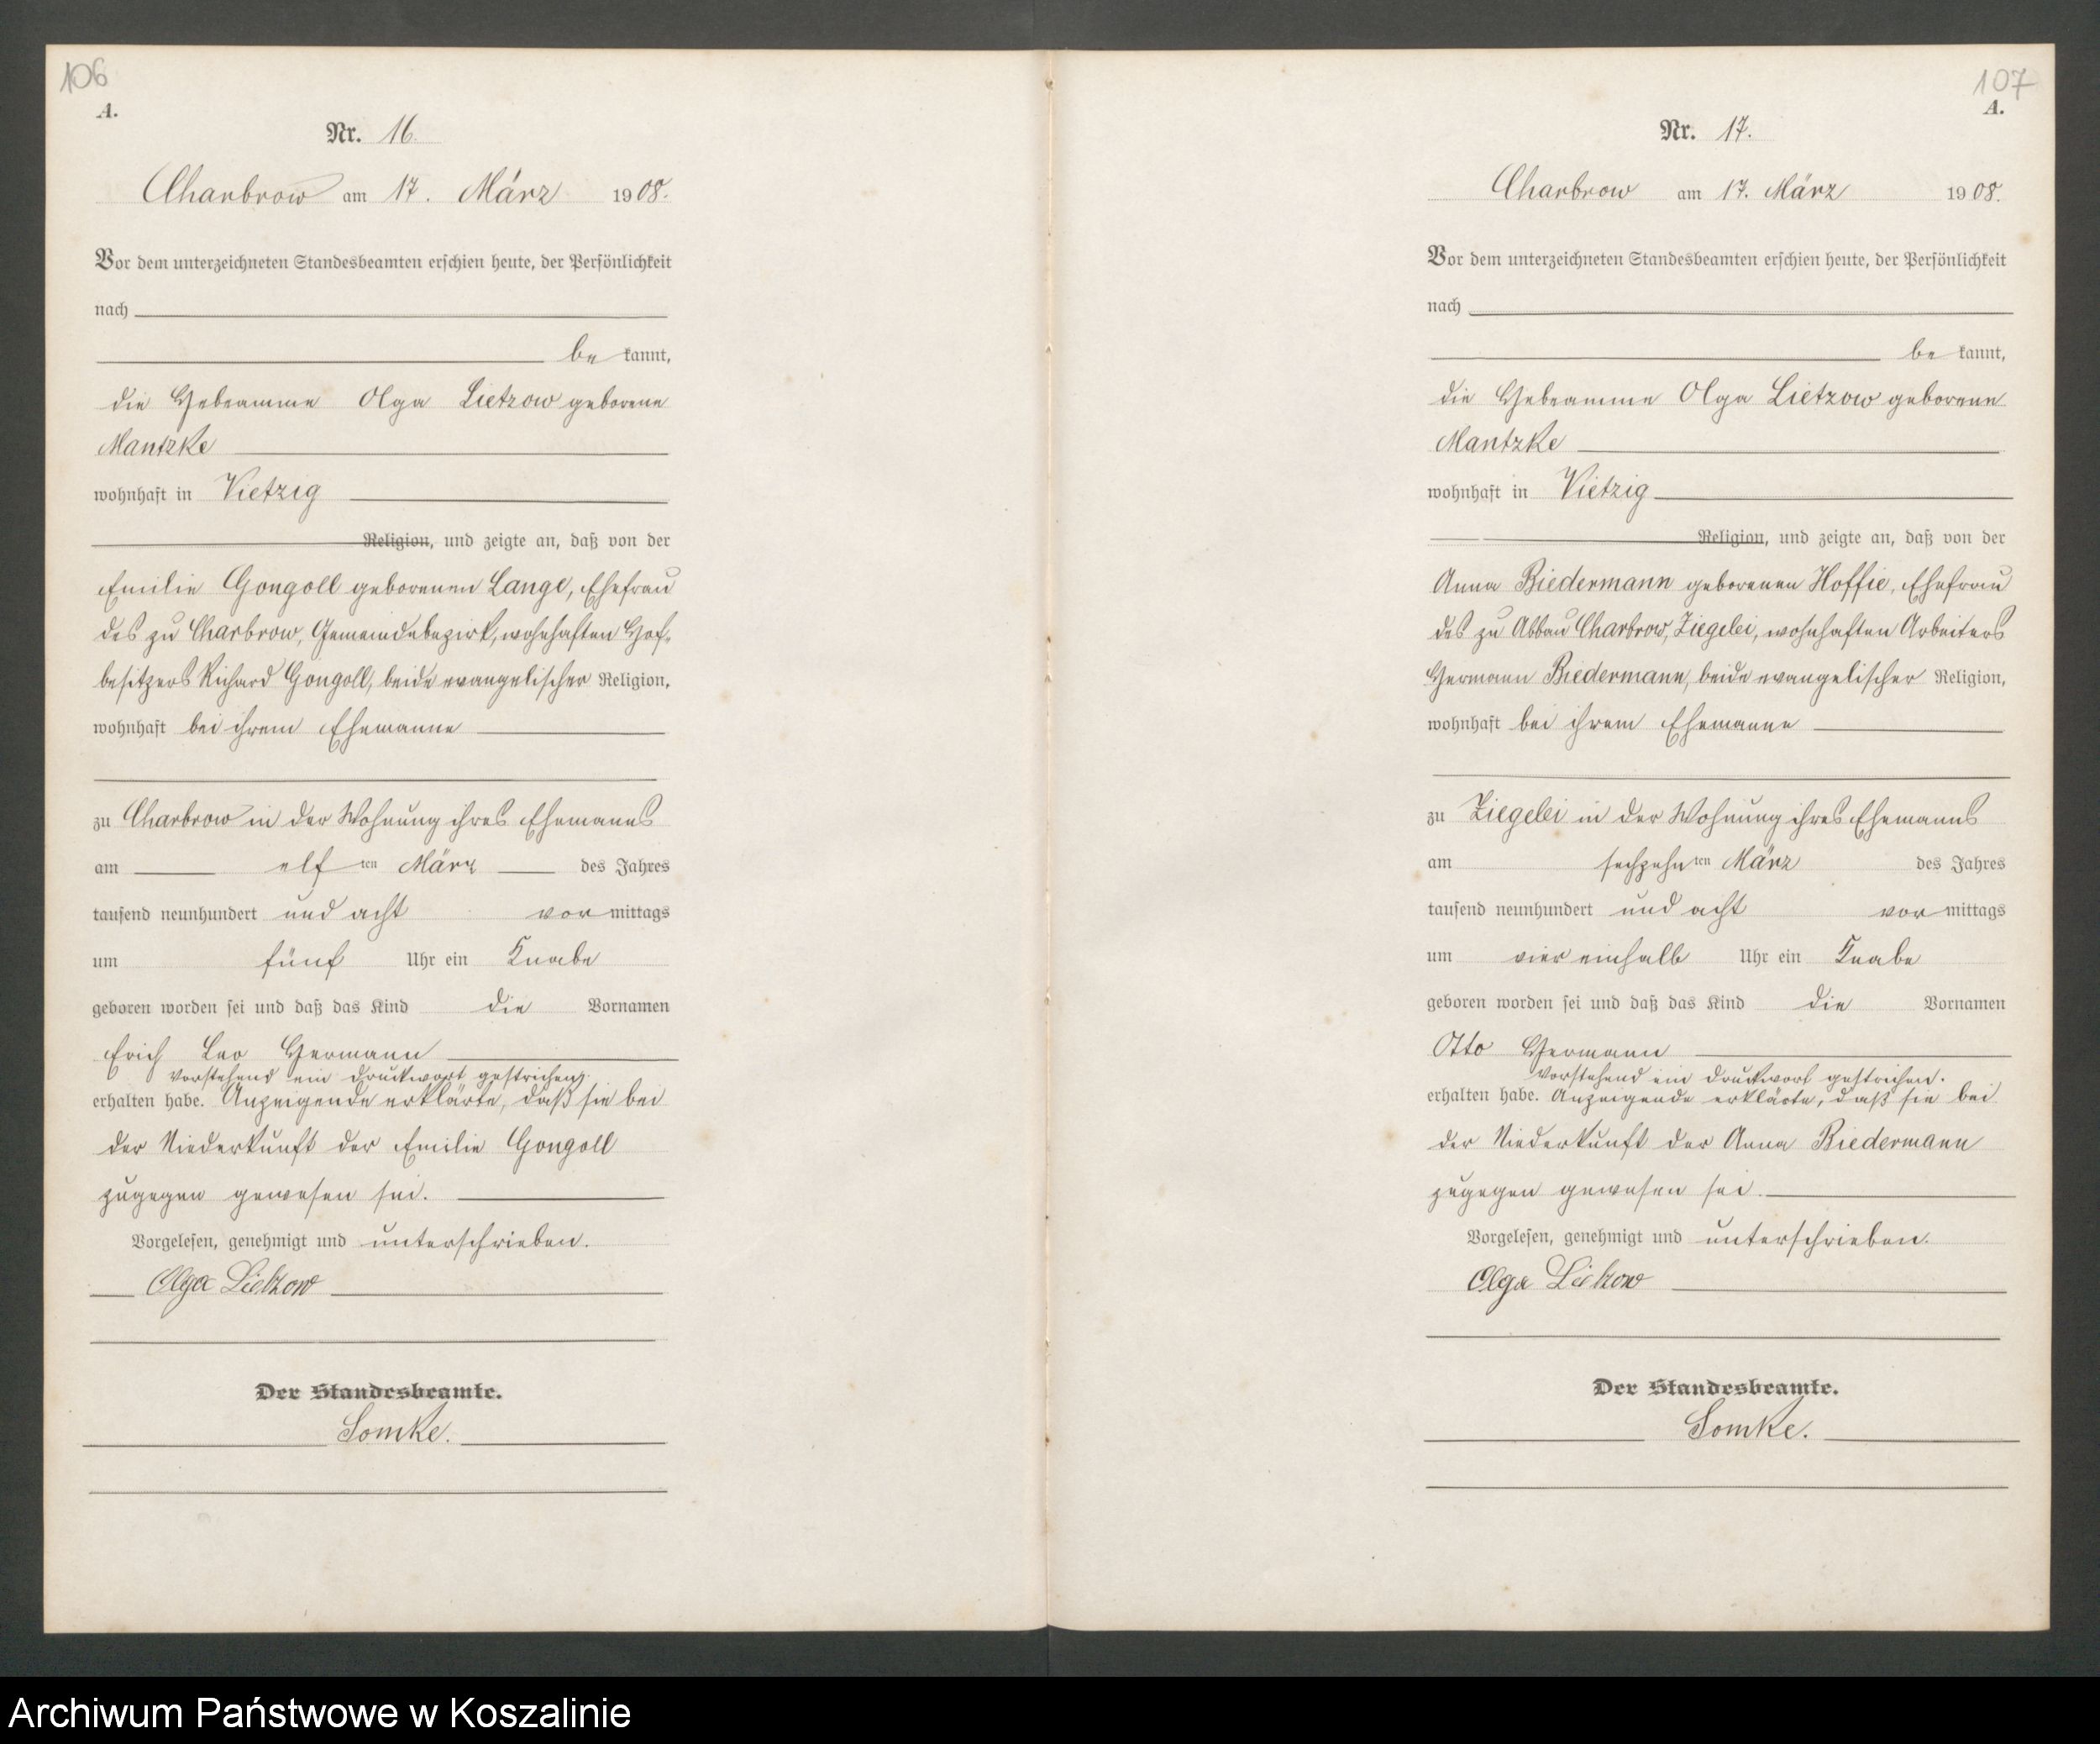 106
A.
Nr. 16.
Charbrow am 17. März 1908.
Vor dem unterzeichneten Standesbeamten erschien heute, der Persönlichkeit
nach
be kannt,
die Hebeamme Olga Lietzow geborene
Mantzke
wohnhaft in Vietzig
Religion, und zeigte an, daß von der
Emilie Gongoll geborenen Lange, Ehefrau
des zu Charbrow, Gemeindebezirk, wohnhaften Hof-
besitzers Richard Gongoll, beide evangelischer Religion,
wohnhaft bei ihrem Ehemanne
zu Charbrow in der Wohnung ihres Ehemanns
am elf ten März des Jahres
tausend neunhundert und acht vor mittags
um fünf Uhr ein Knabe
geboren worden sei und daß das Kind die Vornamen
Erich Leo Hermann
Vorstehend ein Druckwort gestrichen.
erhalten habe. Anzeigende erklärte, daß sie bei
der Niederkunft der Emilie Gongoll
zugegen gewesen sei.
Vorgelesen, genehmigt und unterschrieben.
Olga Lietzow
Der Standesbeamte.
Somke.
107
A.
Nr. 17.
Charbrow am 17. März 1908.
Vor dem unterzeichneten Standesbeamten erschien heute, der Persönlichkeit
nach
be kannt,
die Hebeamme Olga Lietzow geborene
Mantzke
wohnhaft in Vietzig
Religion, und zeigte an, daß von der
Anna Biedermann geborenen Hoffie, Ehefrau
des zu Abbau Charbrow, Ziegelei, wohnhaften Arbeiters
Hermann Biedermann, beide evangelischer Religion,
wohnhaft bei ihrem Ehemanne
zu Ziegelei in der Wohnung ihres Ehemanns
am sechzehn ten März des Jahres
tausend neunhundert und acht vor mittags
um vier einhalb Uhr ein Knabe
geboren worden sei und daß das Kind die Vornamen
Otto Hermann
Vorstehend ein Druckwort gestrichen.
erhalten habe. Anzeigende erklärte, daß sie bei
der Niederkunft der Anna Biedermann
zugegen gewesen sei.
Vorgelesen, genehmigt und unterschrieben.
Olga Lietzow
Der Standesbeamte.
Somke.
Archiwum Państwowe w Koszalinie